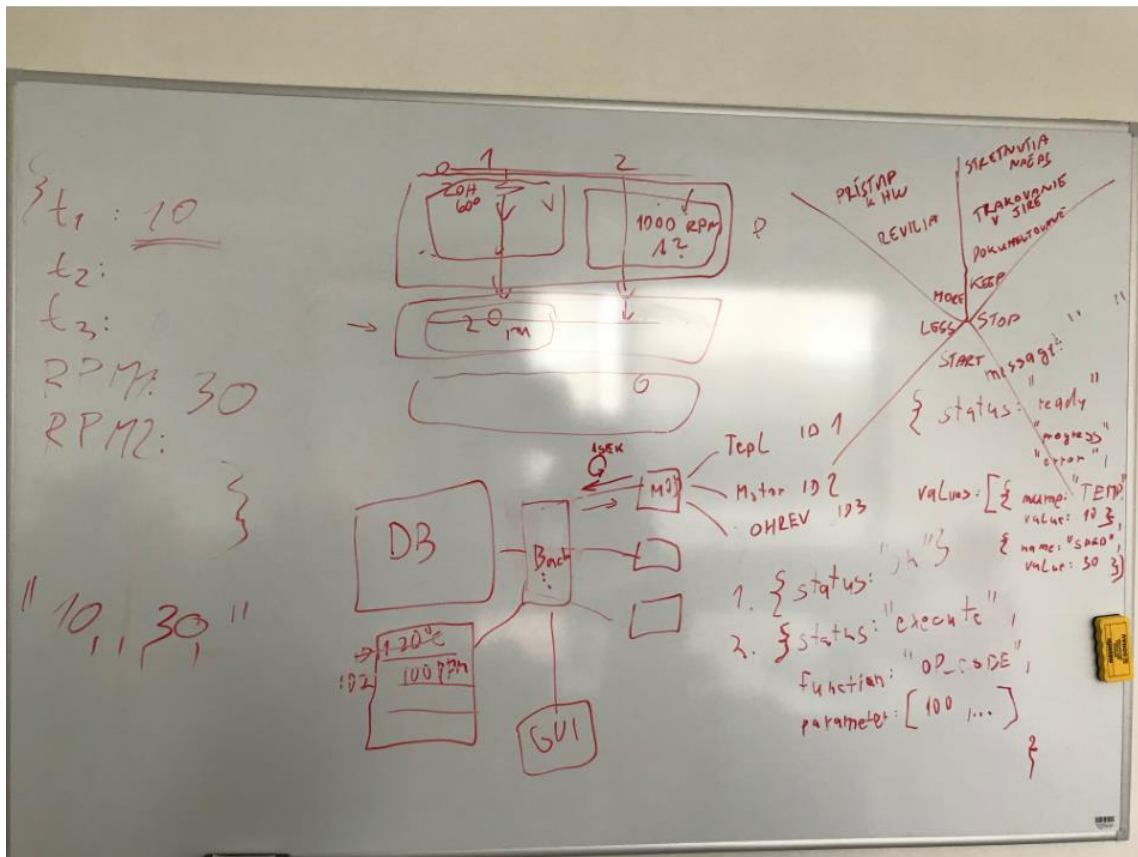 {
t1 : 10
t2:
t3:
RPM1: 30
RPM2:
}
" 10,,,30, "
1
2
ZOH
60°
1000 RPM
1?
20
DB
GUI
120°C
100 RPM
ID2
1SEK
Tepl ID 1
Motor ID2
OHREV ID3
PRÍSTUP
K HW
REVILIA
STRETNUTIA
NAČAS
TRAKOVANIE
V JIRE
DOKUMENTOVANIE
MORE
KEEP
LESS
STOP
START
message: " "
{ status: "ready"
"progress"
"error",
values: [{ name: "TEMP"
value: 10 },
{ name: "SPEED",
value: 30 }]
1. { status: "ok"}
2. { status: "execute",
function: "OP_CODE",
parameter: [ 100 ,... ]
}